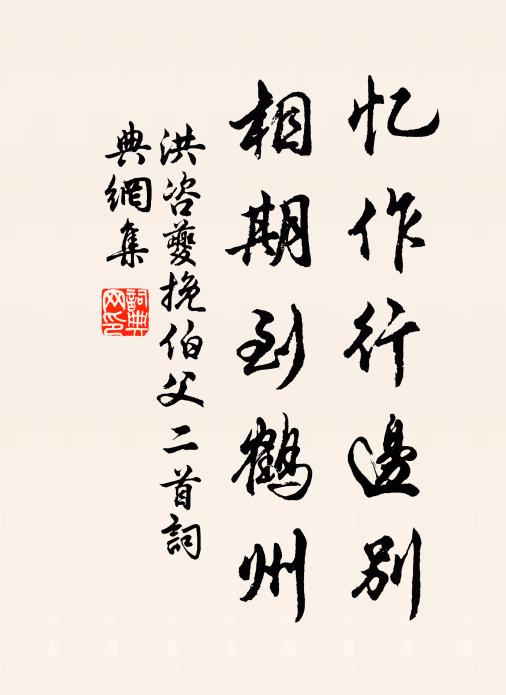 忆作行邊别
相期到鶴州
洪咨夔挽伯父二首詞
典網集
詞典网印